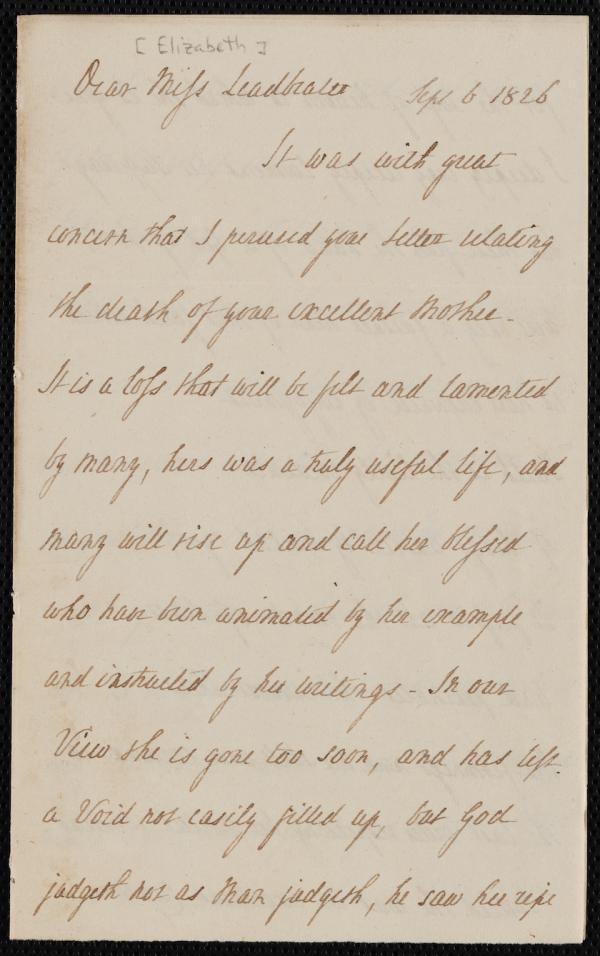 [Elizabeth]
Dear Miss Leadbeater Sept 6 1826
It was with great
concern that I perused your letter relating
the death of your excellent Mother -
It is a loss that will be felt and lamented
by many, hers was a truly useful life, and
many will rise up and call her blessed
who have been animated by her example
and instructed by her writings - In our
View she is gone too soon, and has left
a Void not easily filled up, but God
judgeth not as Man judgeth, he saw her ripe